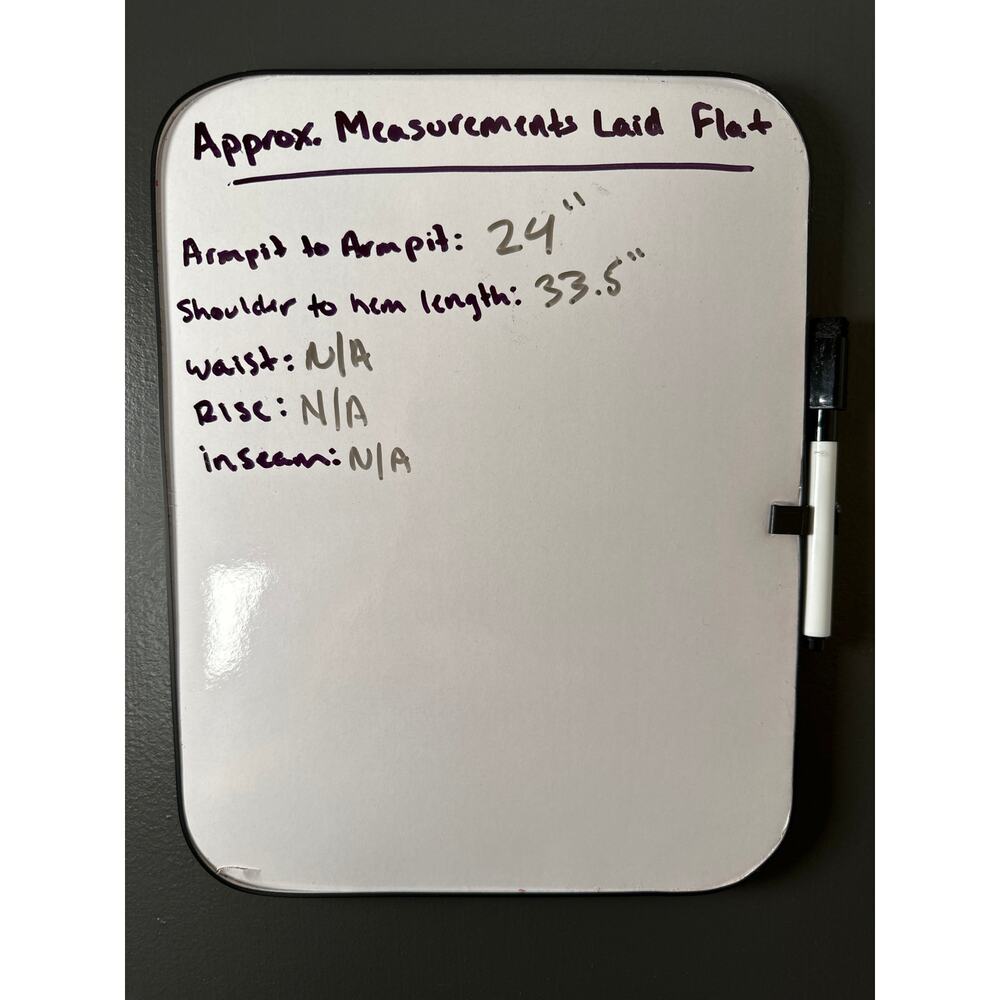 Approx. Measurements Laid Flat
Armpit to Armpit: 24"
Shoulder to hem length: 33.5"
waist: N/A
RISe: N/A
inseam: N/A